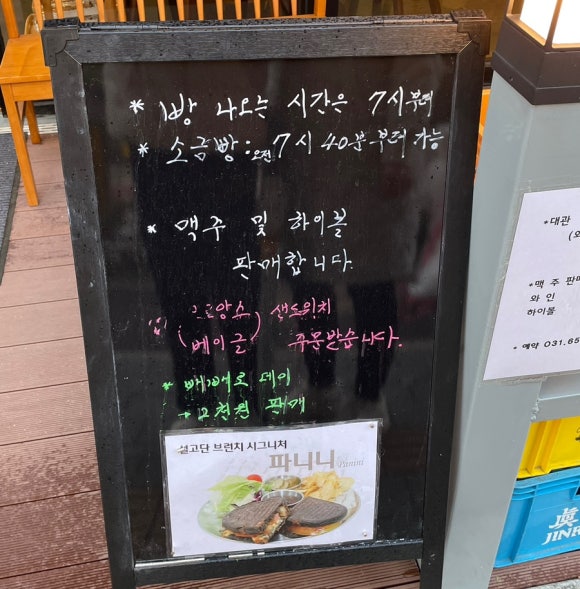 * 빵 나오는 시간은 7시부터
* 소금빵 : 오전 7시 40분부터 가능
* 맥주 및 하이볼
판매합니다.
샌드위치
(베이글) 주문받습니다.
* 빼빼로 데이
→ 2천원 판매
설고단 브런치 시그니처
파니니 Panini
* 대관
* 맥주 판매
와인
하이볼
* 예약 031.65
眞
JINRO